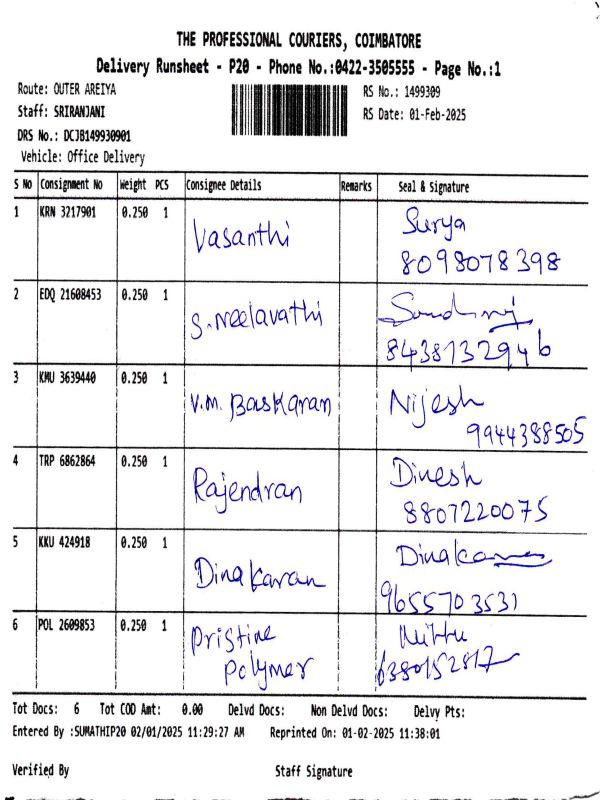 THE PROFESSIONAL COURIERS, COIMBATORE
Delivery Runsheet - P20 - Phone No.:0422-3505555 - Page No.:1
Route: OUTER AREIYA RS No.: 1499309
Staff: SRIRANJANI RS Date: 01-Feb-2025
DRS No.: DCJB149930901
Vehicle: Office Delivery
S No Consignment No Weight PCS Consignee Details Remarks Seal & Signature
1 KRN 3217901 0.250 1 Vasanthi Surya
8098078398
2 EDQ 21608453 0.250 1 S.Neelavathi
8438132946
3 KMU 3639440 0.250 1 V.M. Baskaran Nijesh
9944388505
4 TRP 6862864 0.250 1 Rajendran Dinesh
8807220075
5 KKU 424918 0.250 1 Dinakaran Dinakaran
9655703531
6 POL 2609853 0.250 1 Pristine
Polymer 6380152817
Tot Docs: 6 Tot COD Amt: 0.00 Delvd Docs: Non Delvd Docs: Delvy Pts:
Entered By :SUMATHIP20 02/01/2025 11:29:27 AM Reprinted On: 01-02-2025 11:38:01
Verified By Staff Signature